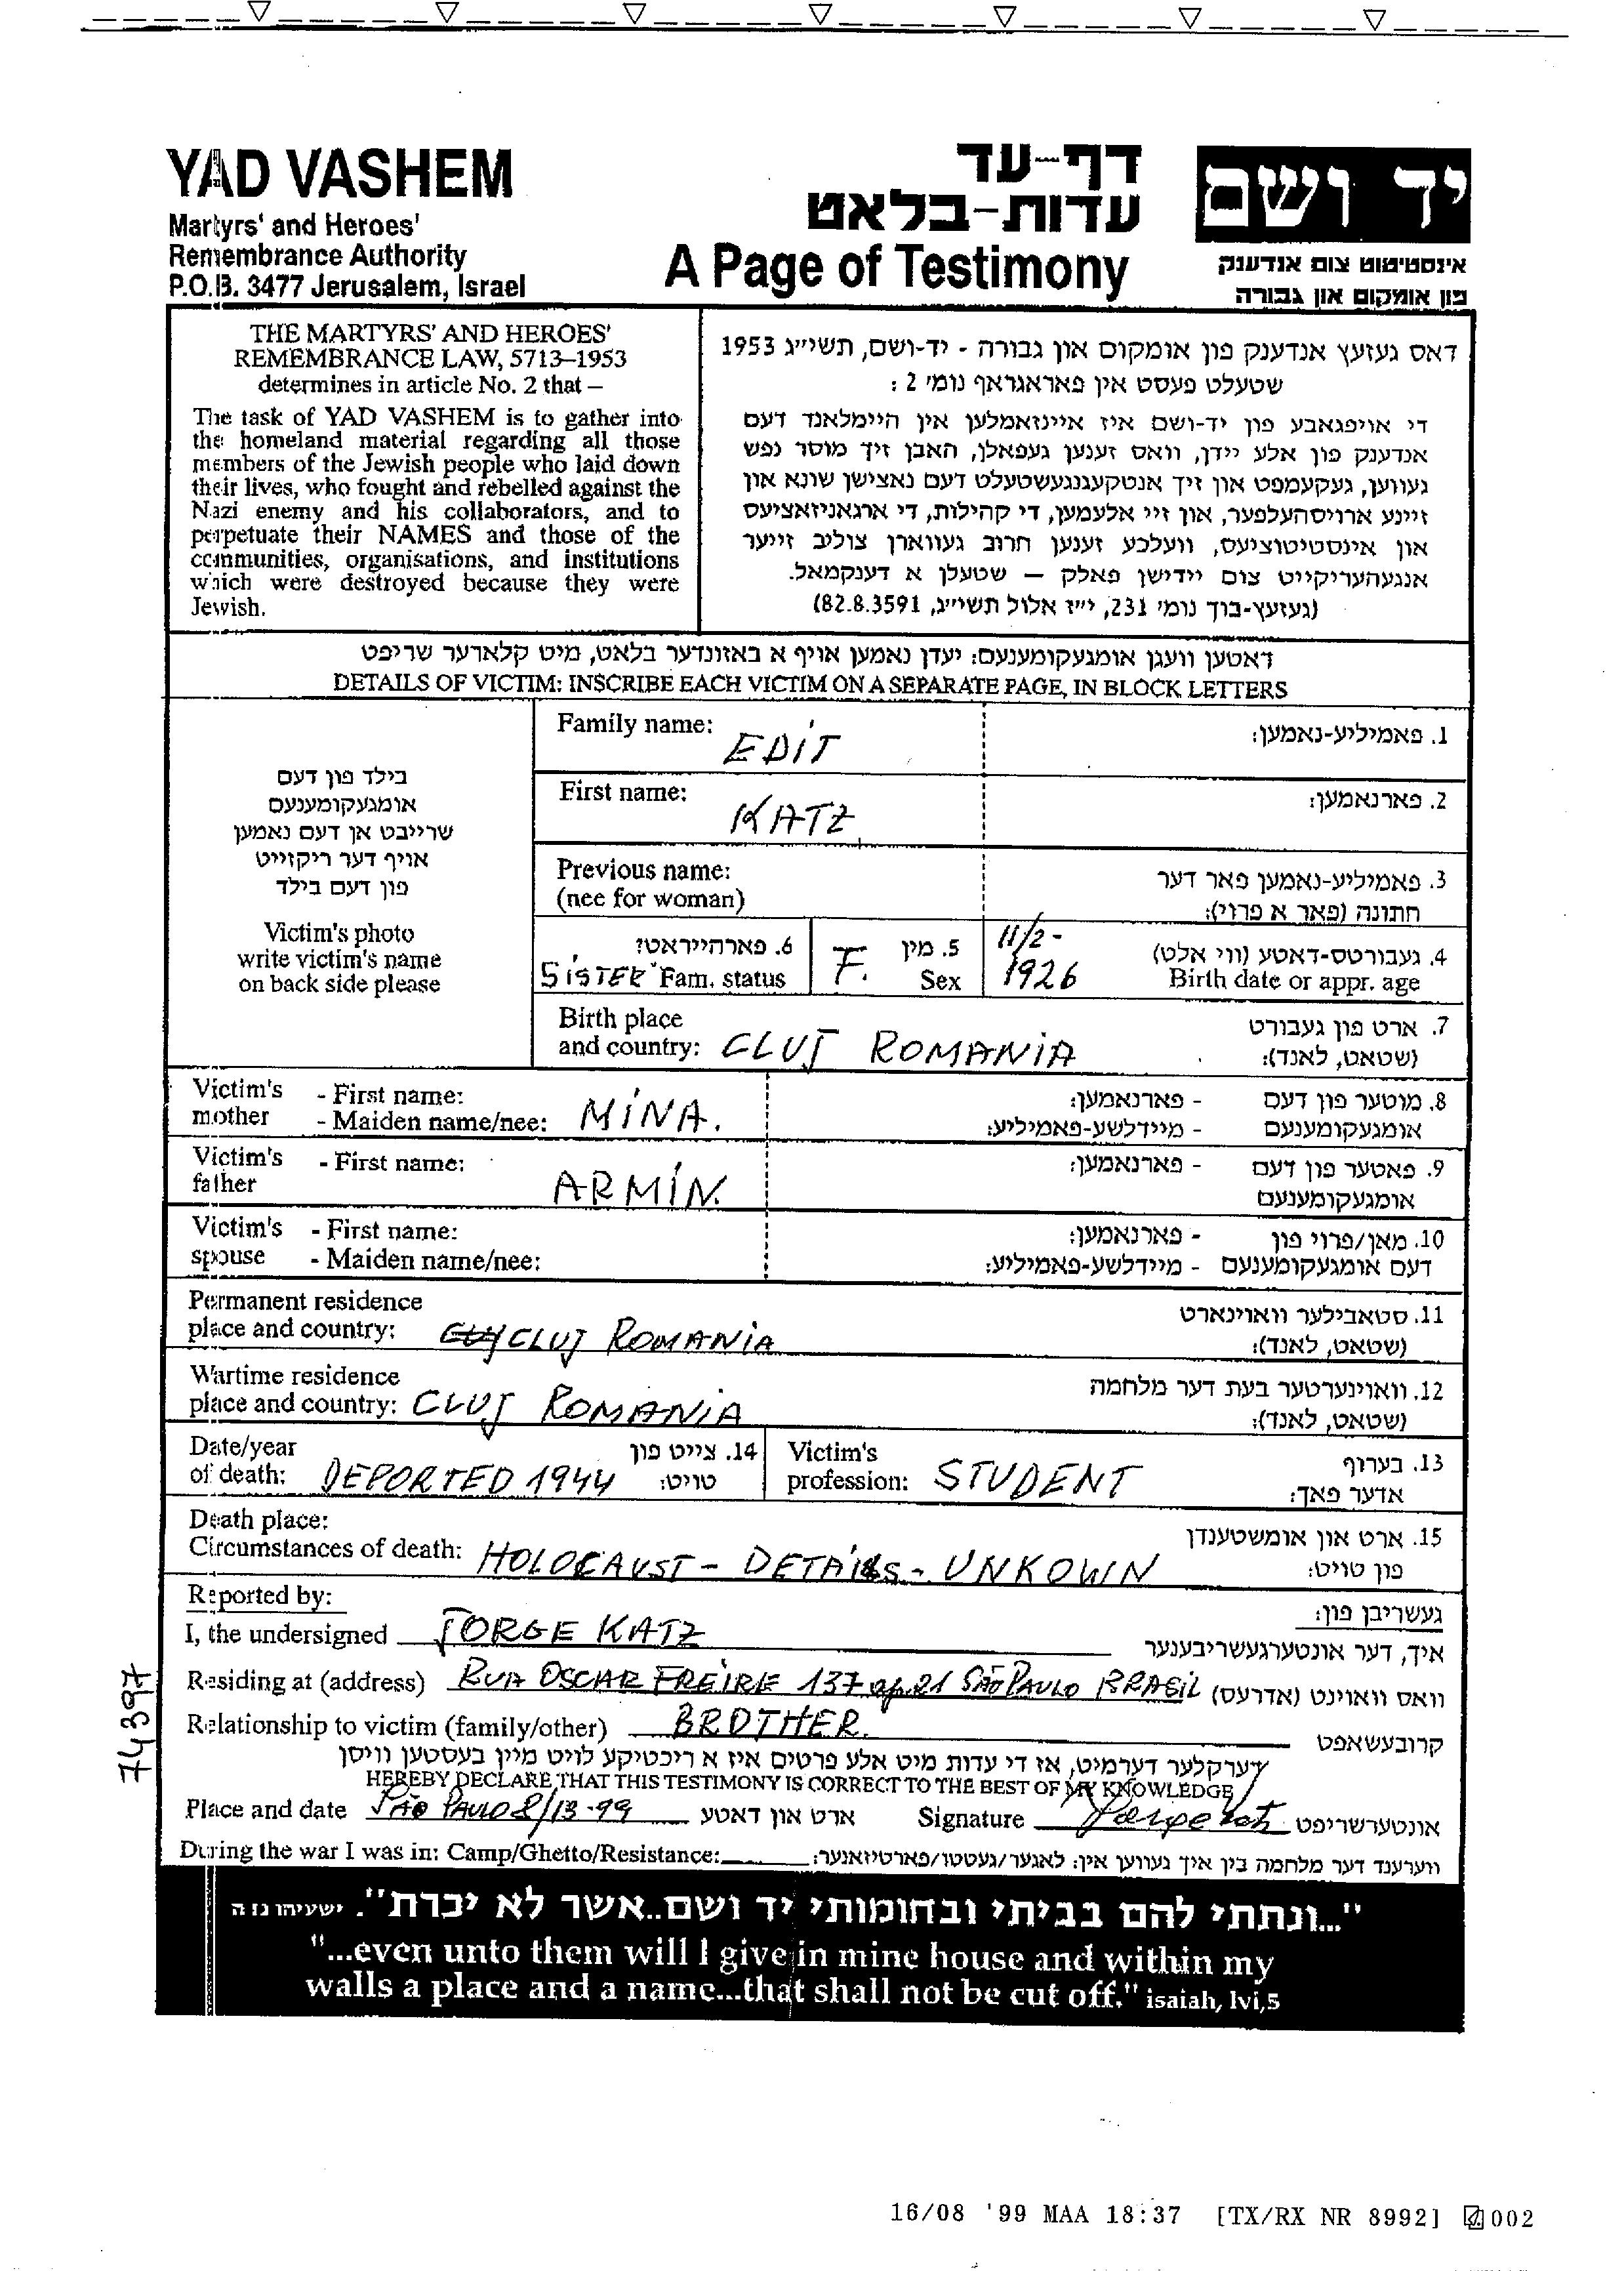 YAD VASHEM
Martyrs' and Heroes'
Remembrance Authority
P.O.B. 3477 Jerusalem, Israel
דף-עד
עדות-בלאט
A Page of Testimony
יד ושם
אינסטיטוט צום אנדענק
פון אומקום און גבורה
THE MARTYRS' AND HEROES'
REMEMBRANCE LAW, 5713–1953
determines in article No. 2 that –
The task of YAD VASHEM is to gather into
the homeland material regarding all those
members of the Jewish people who laid down
their lives, who fought and rebelled against the
Nazi enemy and his collaborators, and to
perpetuate their NAMES and those of the
communities, organisations, and institutions
which were destroyed because they were
Jewish.
דאס געזעץ אנדענק פון אומקום און גבורה - יד-ושם, תשי״ג 1953
שטעלט פעסט אין פאראגראף נומ׳ 2 :
די אויפגאבע פון יד-ושם איז איינזאמלען אין היימלאנד דעם
אנדענק פון אלע יידן, וואס זענען געפאלן, האבן זיך מוסר נפש
געווען, געקעמפט און זיך אנטקעגנגעשטעלט דעם נאצישן שונא און
זיינע ארויסהעלפער, און זיי אלעמען, די קהילות, די ארגאניזאציעס
און אינסטיטוציעס, וועלכע זענען חרוב געווארן צוליב זייער
אנגעהעריקייט צום יידישן פאלק – שטעלן א דענקמאל.
(געזעץ-בוך נומ׳ 231, י״ז אלול תשי״ג, 82.8.3591)
דאטען וועגן אומגעקומענעם: יעדן נאמען אויף א באזונדער בלאט, מיט קלארער שריפט
DETAILS OF VICTIM: INSCRIBE EACH VICTIM ON A SEPARATE PAGE, IN BLOCK LETTERS
בילד פון דעם
אומגעקומענעם
שרייבט אן דעם נאמען
אויף דער ריקזייט
פון דעם בילד
Victim's photo
write victim's name
on back side please
Family name: EDIT 1. פאמיליע-נאמען:
First name: KATZ 2. פארנאמען:
Previous name:
(nee for woman)
3. פאמיליע-נאמען פאר דער
חתונה (פאר א פרוי):
6. פארהייראט?
SISTER Fam. status
F. 5. מין
Sex
11/2-
1926
4. געבורטס-דאטע (ווי אלט)
Birth date or appr. age
Birth place
and country: CLUJ ROMANIA
7. ארט פון געבורט
(שטאט, לאנד):
Victim's mother - First name:
- Maiden name/nee: MINA.
8. מוטער פון דעם - פארנאמען:
אומגעקומענעם - מיידלשע-פאמיליע:
Victim's father - First name: ARMIN.
9. פאטער פון דעם - פארנאמען:
אומגעקומענעם
Victim's spouse - First name:
- Maiden name/nee:
10. מאן/פרוי פון - פארנאמען:
דעם אומגעקומענעם - מיידלשע-פאמיליע:
Permanent residence
place and country: CLUJ ROMANIA
11. סטאבילער וואוינארט
(שטאט, לאנד):
Wartime residence
place and country: CLUJ ROMANIA
12. וואוינערטער בעת דער מלחמה
(שטאט, לאנד):
Date/year
of death: DEPORTED 1944
14. צייט פון
טויט:
Victim's
profession: STUDENT
13. בערוף
אדער פאך:
Death place:
Circumstances of death: HOLOCAUST – DETAILS – UNKOWN
15. ארט און אומשטענדן
פון טויט:
Reported by:
געשריבן פון:
I, the undersigned JORGE KATZ איך, דער אונטערגעשריבענער
Residing at (address) RUA OSCAR FREIRE 137 ap. 21 SÃO PAULO BRASIL וואס וואוינט (אדרעס)
Relationship to victim (family/other) BROTHER. קרובעשאפט
דערקלער דערמיט, אז די עדות מיט אלע פרטים איז א ריכטיקע לויט מיין בעסטען וויסן
HEREBY DECLARE THAT THIS TESTIMONY IS CORRECT TO THE BEST OF MY KNOWLEDGE
Place and date SÃO PAULO 8/13-99 ארט און דאטע Signature אונטערשריפט
During the war I was in: Camp/Ghetto/Resistance: ווערענד דער מלחמה בין איך געווען אין: לאגער/געטטו/פארטיזאנער:
74397
"...ונתתי להם בביתי ובחומותי יד ושם..אשר לא יכרת". ישעיהו נו ה
"...even unto them will I give in mine house and within my
walls a place and a name...that shall not be cut off." isaiah, lvi,5
16/08 '99 MAA 18:37 [TX/RX NR 8992] 002